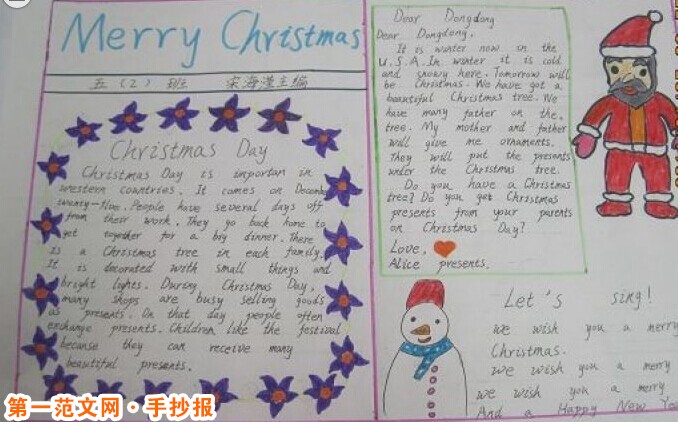 Merry Christmas
五（2） 班 宋海滢主编
Christmas Day
Christmas Day is importan in
western countries. It comes on December
twenty-five. People have several days off
from their work. They go back home to
get together for a big dinner. There
is a Christmas tree in each family.
It is decorated with small things and
bright lights. During Christmas Day,
many shops are busy selling goods
as presents. On that day people often
exchange presents. Children like the festival
because they can receive many
beautiful presents.
Dear Dongdong
Dear Dongdong,
It is winter now in the
U.S.A. In winter it is cold
and snowy here. Tomorrow will
be Christmas. We have got a
beautiful Christmas tree. We
have many father on the.
tree. My mother and father
will give me ornaments.
They will put the presents
under the Christmas tree.
Do you have a Christmas
tree? Do you get Christmas
presents from your parents
on Christmas Day?
Love,
Alice presents.
Let's sing!
we wish you a merry
Christmas.
we wish you a merry
we wish you a merry
And a Happy New
第一范文网·手抄报